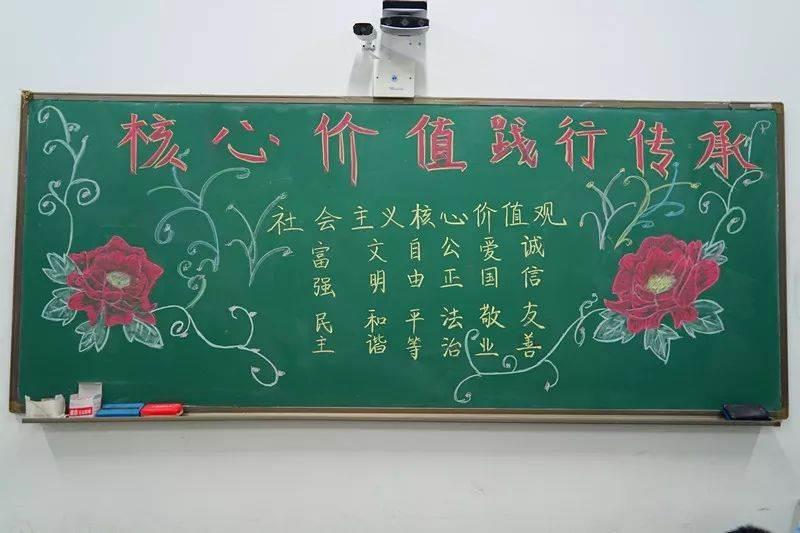 核心价值践行传承
社会主义核心价值观
富强 民主
文明 和谐
自由 平等
公正 法治
爱国 敬业
诚信 友善